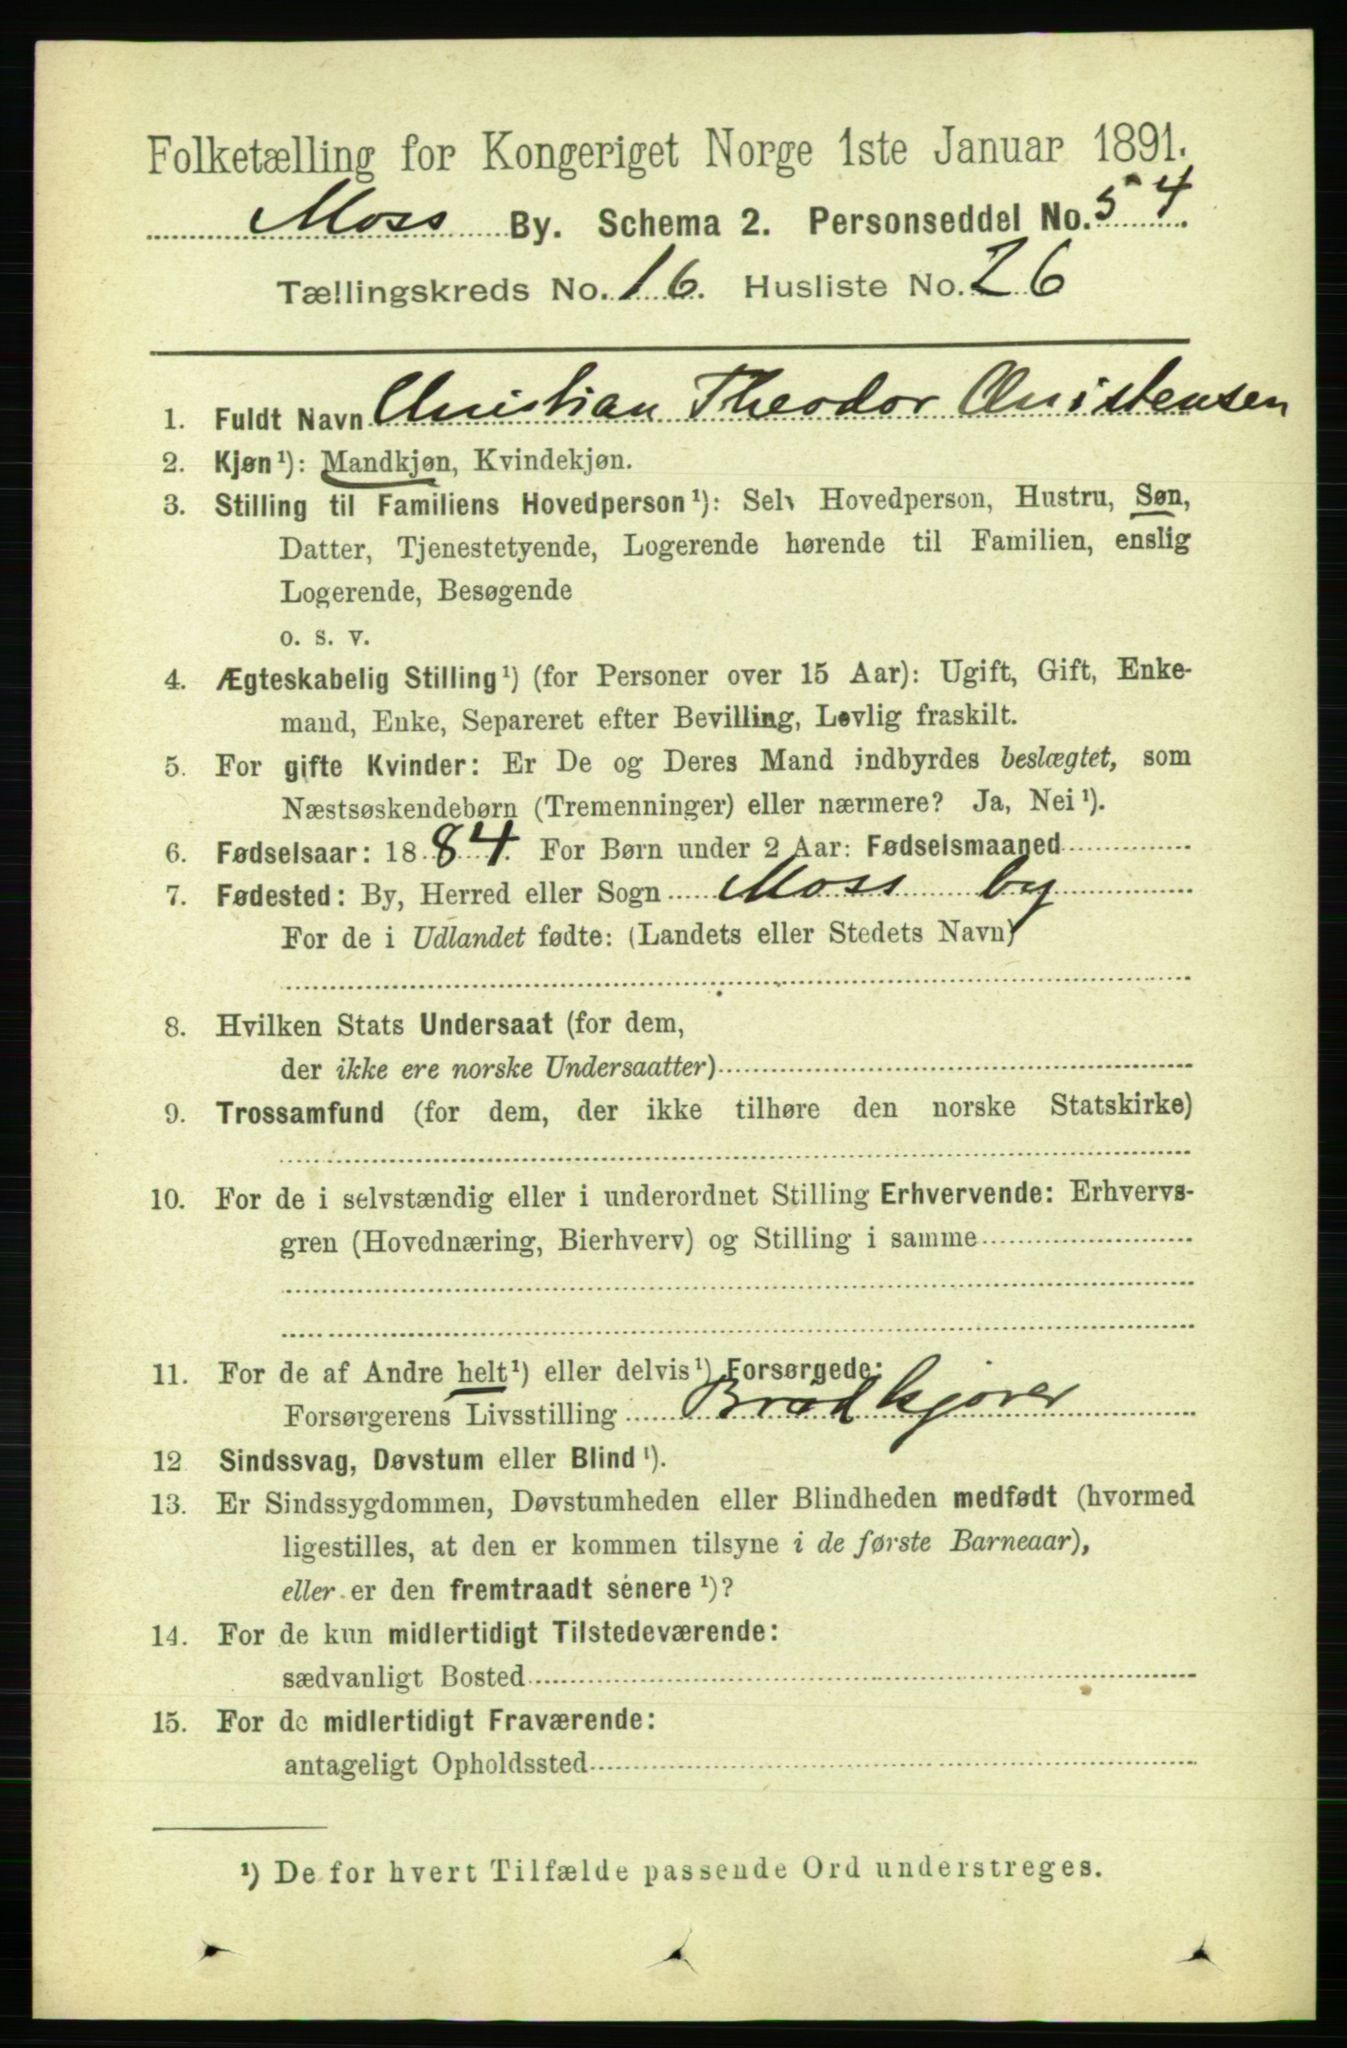 Folketælling for Kongeriget Norge 1ste Januar 1891.
Moss By. Schema 2. Personseddel No. 54.
Tællingskreds No. 16. Husliste No. 26
1. Fuldt Navn Christian Theodor Christensen
2. Kjøn¹): Mandkjøn, Kvindekjøn.
3. Stilling til Familiens Hovedperson¹): Selv Hovedperson, Hustru, Søn,
Datter, Tjenestetyende, Logerende hørende til Familien, enslig
Logerende, Besøgende
o. s. v.
4. Ægteskabelig Stilling¹) (for Personer over 15 Aar): Ugift, Gift, Enke-
mand, Enke, Separeret efter Bevilling, Lovlig fraskilt.
5. For gifte Kvinder: Er De og Deres Mand indbyrdes beslægtet, som
Næstsøskendebørn (Tremenninger) eller nærmere? Ja, Nei¹).
6. Fødselsaar: 1884. For Børn under 2 Aar: Fødselsmaaned
7. Fødested: By, Herred eller Sogn Moss by
For de i Udlandet fødte: (Landets eller Stedets Navn)
8. Hvilken Stats Undersaat (for dem,
der ikke ere norske Undersaatter)
9. Trossamfund (for dem, der ikke tilhøre den norske Statskirke)
10. For de i selvstændig eller i underordnet Stilling Erhvervende: Erhvervs-
gren (Hovednæring, Bierhverv) og Stilling i samme
11. For de af Andre helt¹) eller delvis¹) Forsørgede:
Forsørgerens Livsstilling Brødkjører
12 Sindssvag, Døvstum eller Blind¹).
13. Er Sindssygdommen, Døvstumheden eller Blindheden medfødt (hvormed
ligestilles, at den er kommen tilsyne i de første Barneaar),
eller er den fremtraadt senere¹)?
14. For de kun midlertidigt Tilstedeværende:
sædvanligt Bosted
15. For de midlertidigt Fraværende:
antageligt Opholdssted
¹) De for hvert Tilfælde passende Ord understreges.